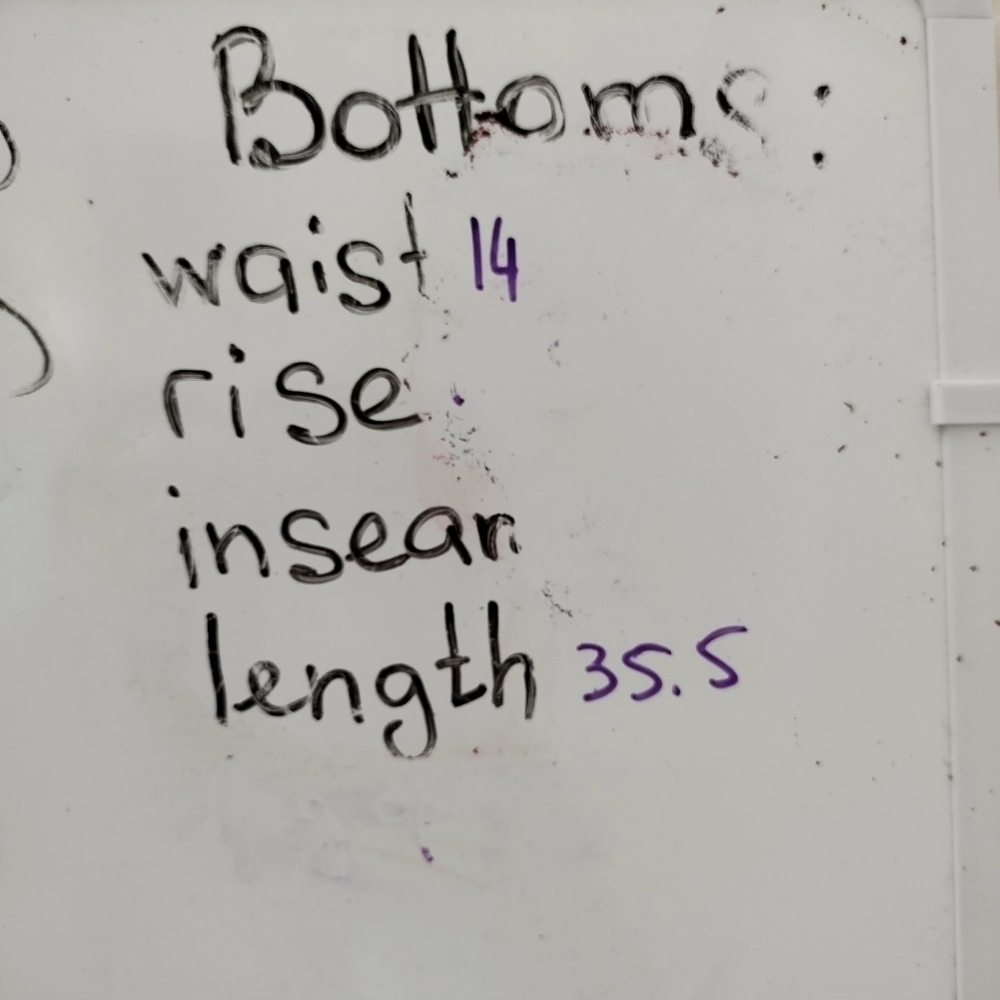 Bottoms:
waist 14
rise
insean
length 35.5